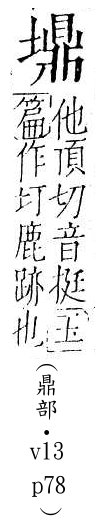 他頂切音挺玉
篇作圢鹿跡也
（鼎部・v13 p78）